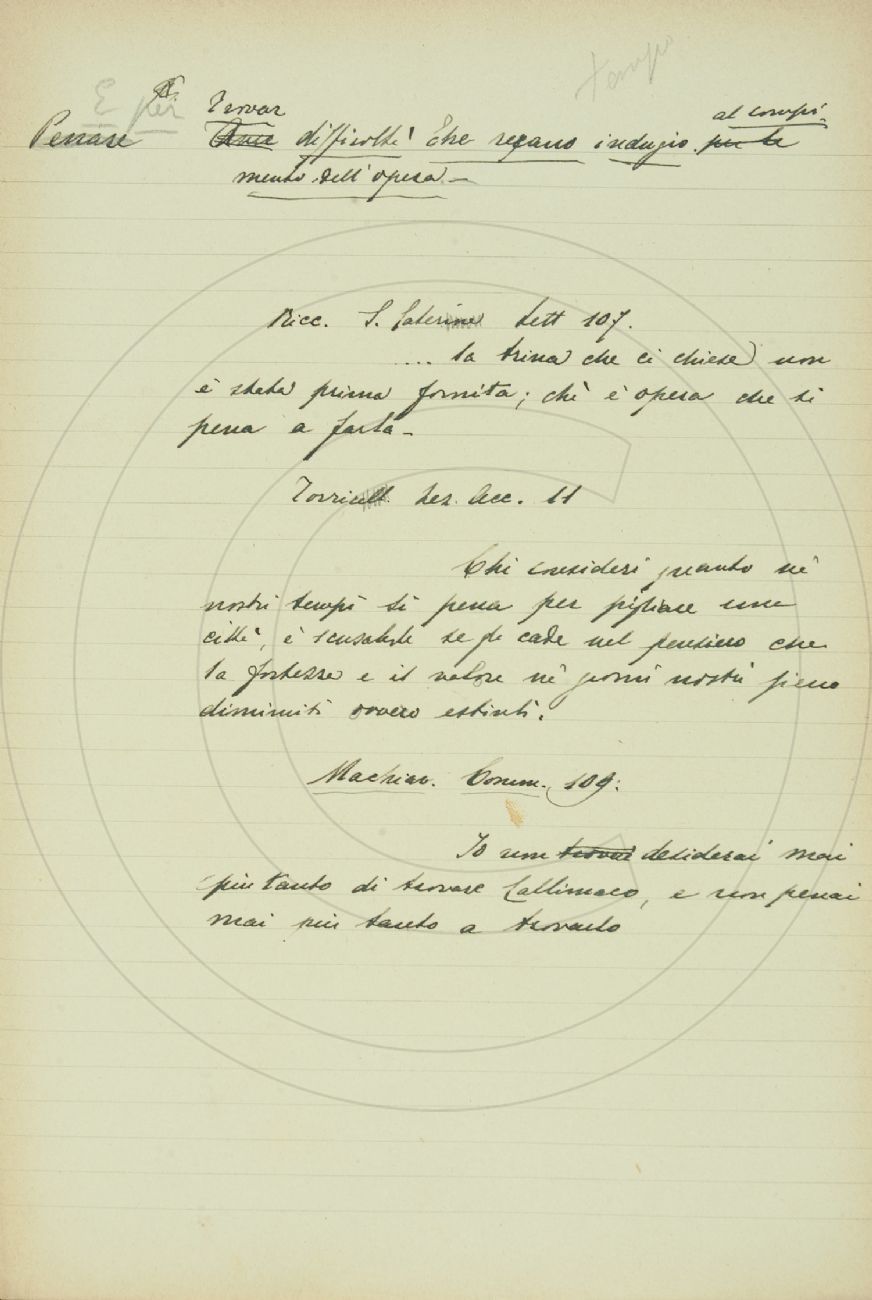 tempo
E per
Trovar al compi-
Penare Aver difficoltà che recano indugio. per le
mento dell'opera –
Ricc. S. Caterina Lett 107.
.... la trina che ci chiese non
è stata prima fornita; chè è opera che si
pena a farla –
Torricell. Lez. Acc. 11
Chi consideri quanto ne'
nostri tempi si pena per pigliare una
città, è scusabile se gli cade nel pensiero che
la fortezza e il valore ne' giorni nostri sieno
diminuiti ovvero estinti.
Machiav. Comm. 109:
Io non trovai desiderai mai
più tanto di trovare Callimaco, e non penai
mai più tanto a trovarlo